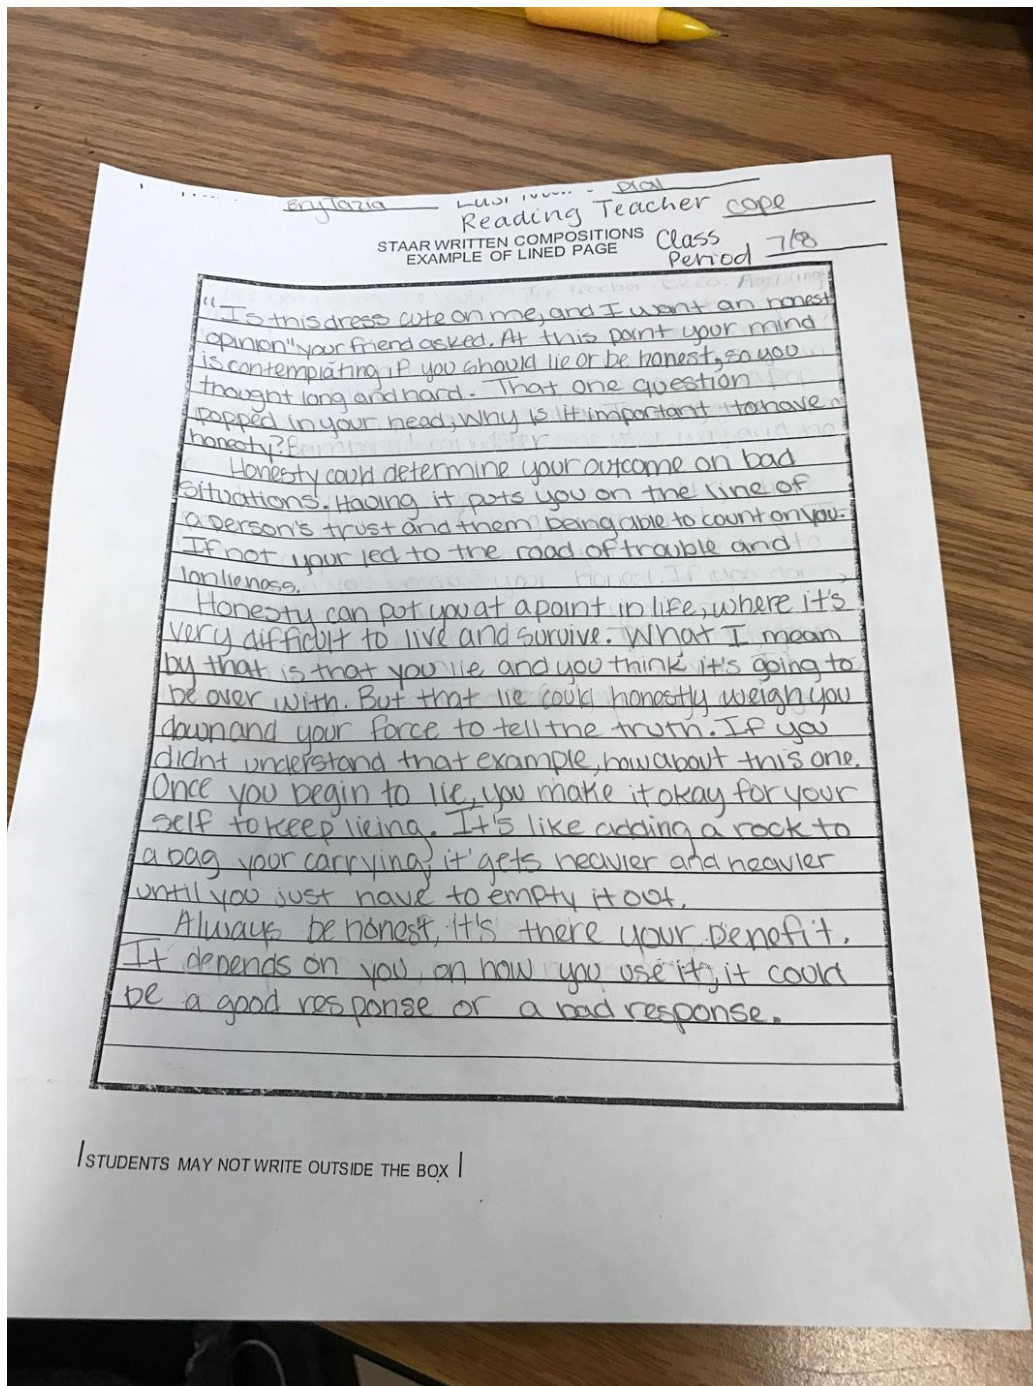 BryTazia Dial
Reading Teacher cope
STAAR WRITTEN COMPOSITIONS Class
EXAMPLE OF LINED PAGE Period 7/8
"Is this dress cute on me, and I want an honest
opinion" your friend asked. At this point your mind
is contemplating if you should lie or be honest, so you
thought long and hard. That one question
popped in your head, Why is it important to have
honesty?
Honesty could determine your outcome on bad
situations. Having it puts you on the line of
a person's trust and them being able to count on you.
If not your led to the road of trouble and
lonlieness.
Honesty can put you at a point in life, where it's
very difficult to live and survive. What I mean
by that is that you lie and you think it's going to
be over with. But that lie could honestly weigh you
down and your force to tell the truth. If you
didnt understand that example, how about this one.
Once you begin to lie, you make it okay for your
self to keep lieing. It's like adding a rock to
a bag your carrying, it gets heavier and heavier
until you just have to empty it out.
Always be honest, it's there your benefit.
It depends on you, on how you use it, it could
be a good response or a bad response.
STUDENTS MAY NOT WRITE OUTSIDE THE BOX